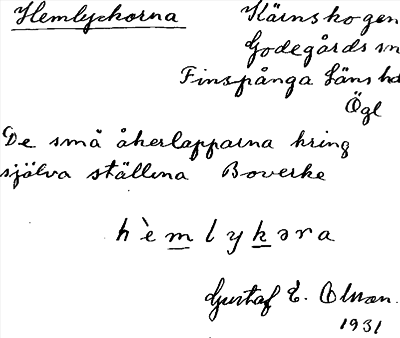 Hemlyckorna Kärnskogen
Godegårds sn
Finspånga läns hd
Ögl
De små åkerlapparna kring
själva ställena Boverke
hèmlykəra
Gustaf E. Olsson.
1931